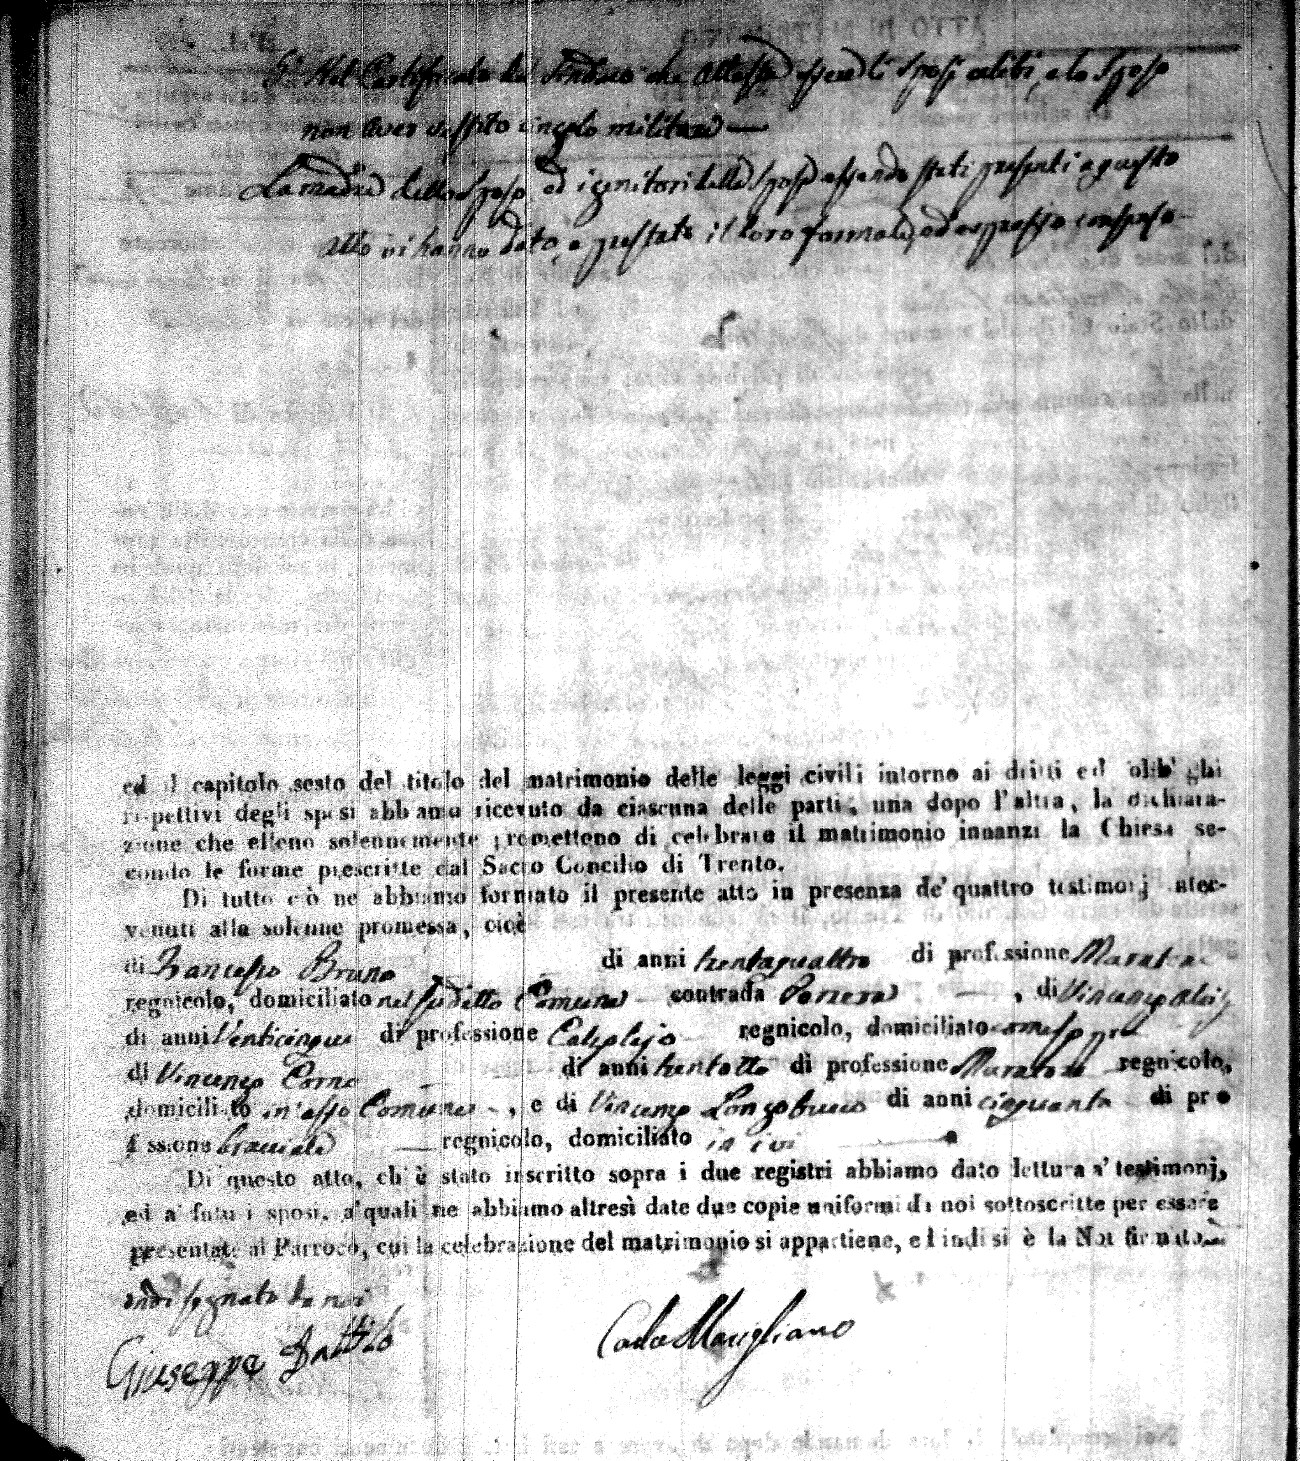 5.° Nel Certificato del Sindaco che attesta essere li sposi celibi, e lo sposo
non aver sofferto cingolo militare —
La madre dello sposo, ed i genitori della sposa essendo stati presenti a questo
atto vi hanno dato, e prestato il loro formale, ed espresso consenso —
ed il capitolo sesto del titolo del matrimonio delle leggi civili intorno ai dritti ed obblighi
rispettivi degli sposi abbiamo ricevuto da ciascuna delle parti, una dopo l'altra, la dichiara-
zione che elleno solennemente promettono di celebrare il matrimonio innanzi la Chiesa se-
condo le forme prescritte dal Sacro Concilio di Trento.
Di tutto ciò ne abbiamo formato il presente atto in presenza de' quattro testimonj inter-
venuti alla solenne promessa, cioè
di Francesco Bruno di anni trentaquattro di professione
regnicolo, domiciliato nel suddetto Comune contrada , di Vincenzo
di anni Venticinque di professione regnicolo, domiciliato come sopra
di Vincenzo di anni trentotto di professione Muratore regnicolo,
domiciliato in esso Comune , e di Vincenzo Longobucco di anni cinquanta di pro
fessione bracciale regnicolo, domiciliato ivi
Di questo atto, ch'è stato inscritto sopra i due registri abbiamo dato lettura a' testimonj,
ed a' futuri sposi, a' quali ne abbiamo altresì date due copie uniformi da noi sottoscritte per essere
presentate al Parroco, cui la celebrazione del matrimonio si appartiene, e indi si è da Noi firmato
indi segnato da noi
Giuseppe Dattilo Carlo Marigliano